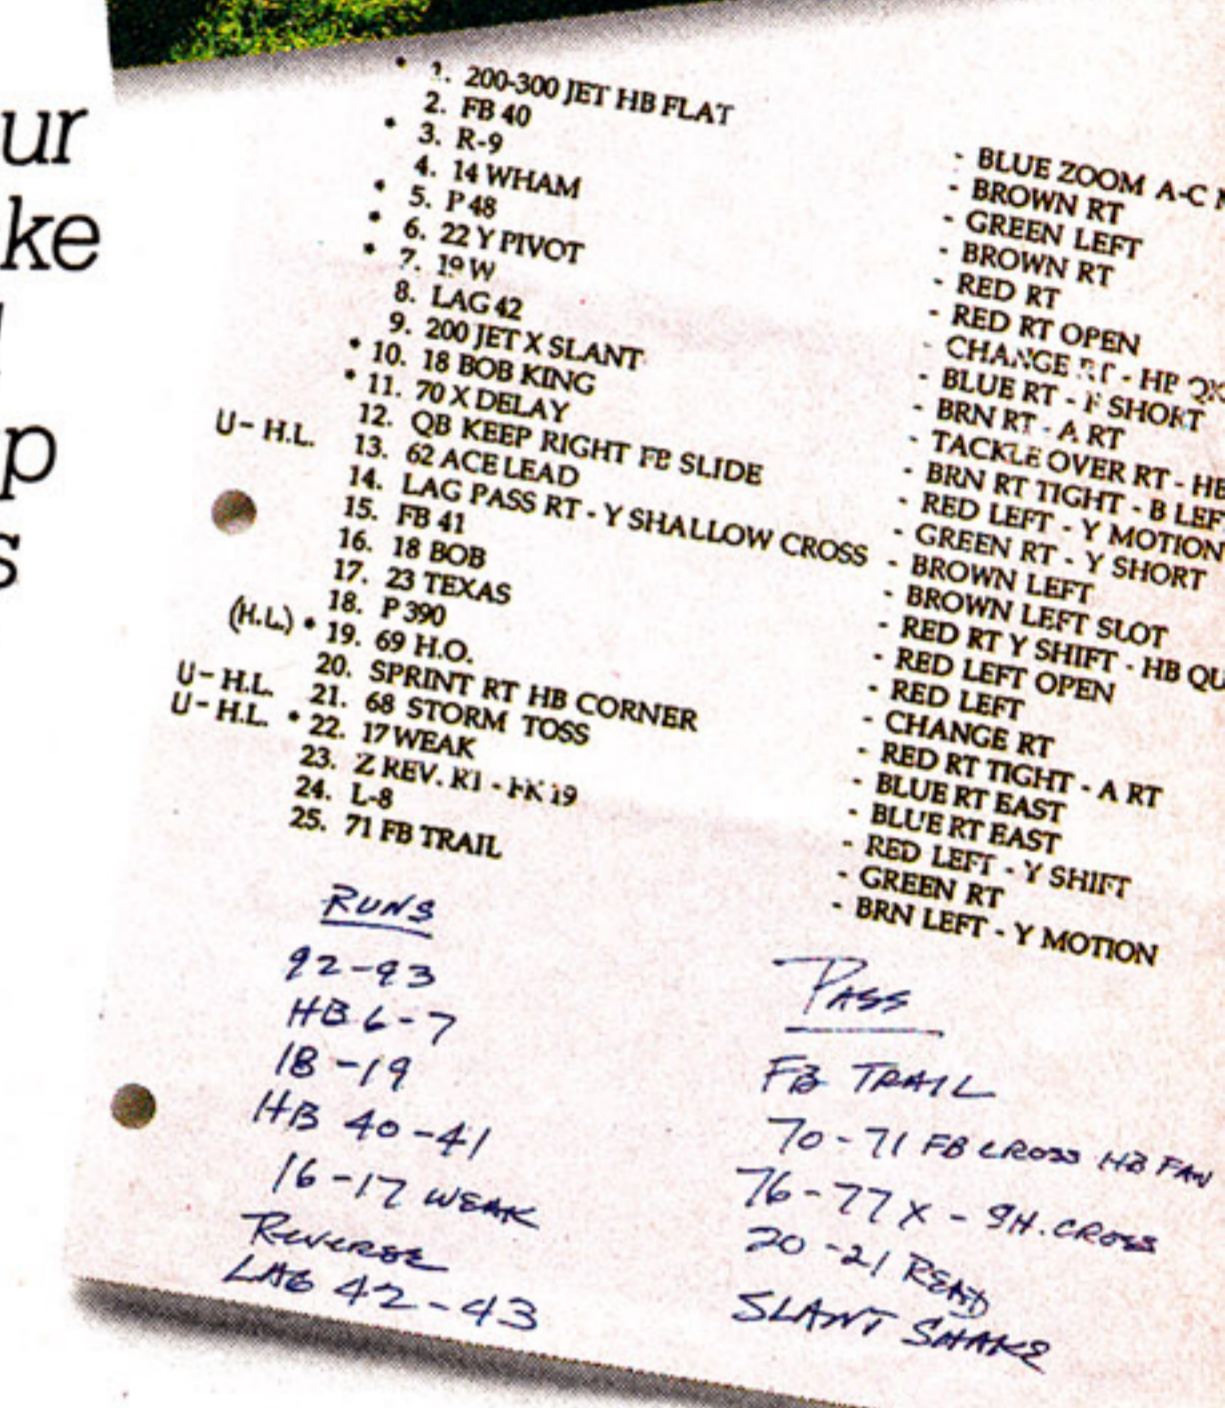 ur
ke
p
s
• 1. 200-300 JET HB FLAT
2. FB 40
• 3. R-9
4. 14 WHAM
• 5. P 48
• 6. 22 Y PIVOT
• 7. 19 W
8. LAG 42
9. 200 JET X SLANT
• 10. 18 BOB KING
• 11. 70 X DELAY
12. QB KEEP RIGHT FB SLIDE
U-H.L. 13. 62 ACE LEAD
14. LAG PASS RT - Y SHALLOW CROSS
15. FB 41
16. 18 BOB
17. 23 TEXAS
18. P 390
(H.L.) • 19. 69 H.O.
20. SPRINT RT HB CORNER
U-H.L. 21. 68 STORM TOSS
U-H.L. • 22. 17 WEAK
23. Z REV. RT - FK 19
24. L-8
25. 71 FB TRAIL
- BLUE ZOOM A-C
- BROWN RT
- GREEN LEFT
- BROWN RT
- RED RT
- RED RT OPEN
- CHANGE RT - HB
- BLUE RT - F SHORT
- BRN RT - A RT
- TACKLE OVER RT - HB
- BRN RT TIGHT - B LEF
- RED LEFT - Y MOTION
- GREEN RT - Y SHORT
- BROWN LEFT
- BROWN LEFT SLOT
- RED RT Y SHIFT - HB QU
- RED LEFT OPEN
- RED LEFT
- CHANGE RT
- RED RT TIGHT - A RT
- BLUE RT EAST
- BLUE RT EAST
- RED LEFT - Y SHIFT
- GREEN RT
- BRN LEFT - Y MOTION
RUNS
92-93
HB 6-7
18-19
HB 40-41
16-17 WEAK
REVERSE
LAG 42-43
PASS
FB TRAIL
70-71 FB CROSS HB FAN
76-77 X - 9H. CROSS
20-21 READ
SLANT SHAKE